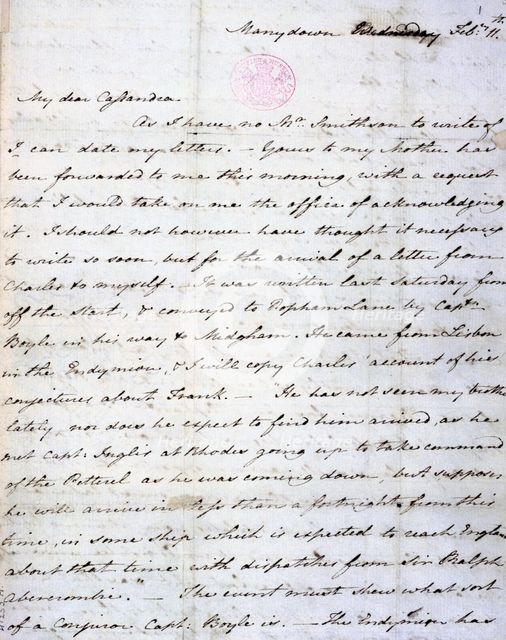 Manydown Wednesday Feb:ry 11th.
My dear Cassandra
As I have no Mr. Smithson to write of
I can date my letters. — Yours to my Mother has
been forwarded to me this morning, with a request
that I would take on me the office of acknowledging
it. I should not however have thought it necessary
to write so soon, but for the arrival of a letter from
Charles to myself. — It was written last Saturday from
off the Start, & conveyed to Popham Lane by Captn
Boyle in his way to Midgham. He came from Lisbon
in the Endymion, & I will copy Charles' account of his
conjectures about Frank. — "He has not seen my brother
lately, nor does he expect to find him arrived, as he
met Capt: Inglis at Rhodes going up to take command
of the Petterel as he was coming down, but supposes
he will arrive in less than a fortnight from this
time, in some ship which is expected to reach England
about that time with dispatches from Sir Ralph
Abercrombie." — The event must shew what sort
of a Conjuror Capt: Boyle is. — The Endymion has